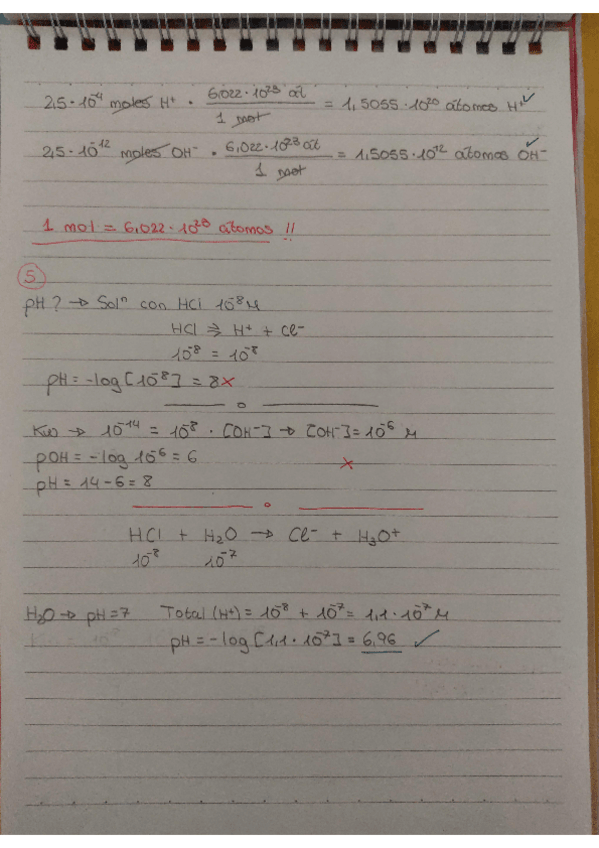 2,5·10⁻⁴ moles H⁺ · 6,022·10²³ át / 1 mol = 1,5055·10²⁰ átomos H⁺ ✓
2,5·10⁻¹² moles OH⁻ · 6,022·10²³ át / 1 mol = 1,5055·10¹² átomos OH⁻ ✓
1 mol = 6,022·10²³ átomos !!
5
pH? → Solⁿ con HCl 10⁻⁸ M
HCl ⇒ H⁺ + Cl⁻
10⁻⁸ = 10⁻⁸
pH = -log [10⁻⁸] = 8 x
Kw → 10⁻¹⁴ = 10⁻⁸ · [OH⁻] → [OH⁻] = 10⁻⁶ M
pOH = -log 10⁻⁶ = 6 x
pH = 14 - 6 = 8
HCl + H₂O → Cl⁻ + H₃O⁺
10⁻⁸ 10⁻⁷
H₂O → pH = 7 Total (H⁺) = 10⁻⁸ + 10⁻⁷ = 1,1·10⁻⁷ M
pH = -log [1,1·10⁻⁷] = 6,96 ✓